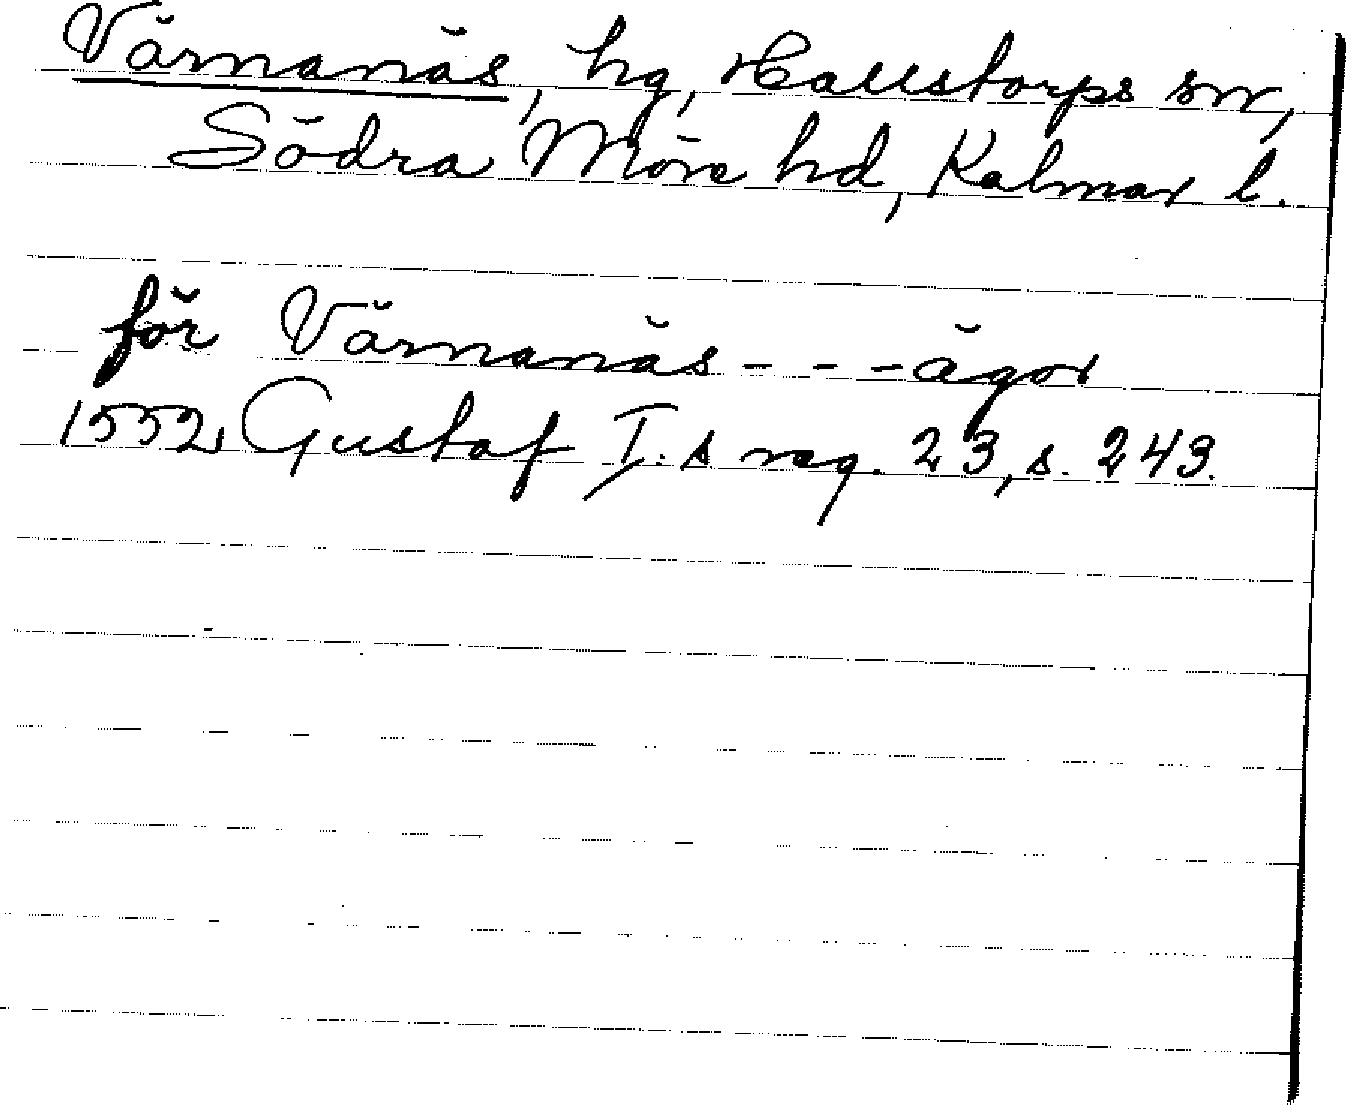 Värnanäs, hg, Hallstorps sn,
Södra Möre hd, Kalmar l.
för Värnanäs - - - ägor
1552, Gustaf I:s reg. 23, s. 243.